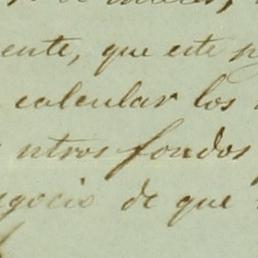 ente, que este
calcular los
ntros fondos
egocio de que